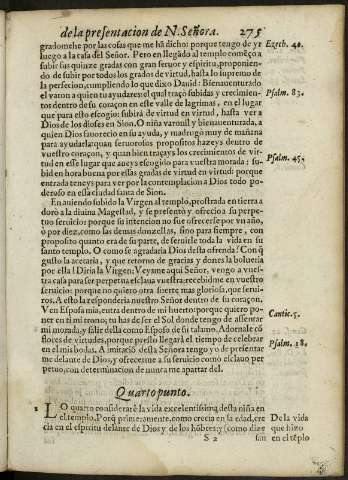 de la presentacion de N. Señora. 275
gradome he por las cosas que me hã dicho: porque tengo de yr
luego a la casa del Señor. Pero en llegãdo al templo començò a
subir sus quinze gradas con gran feruor y espiritu, proponien-
do de subir por todos los grados de virtud, hasta lo supremo de
la perfecion, cumpliendo lo que dixo Dauid: Bienauenturado
el varon a quien tu ayudares: el qual traçò subidas y crecimien-
tos dentro de su coraçon en este valle de lagrimas, en el lugar
que para esto escogio: subirà de virtud en virtud, hasta ver a
Dios de los dioses en Sion. O niña varonil y bienauenturada, a
quien Dios fauorecio en su ayuda, y madrugò muy de mañana
para ayudarla: quan feruorosos propositos hazeys dentro de
vuestro coraçon, y quan bien traçays los crecimientos de vir-
tud en esse lugar que aueys escogido para vuestra morada: su-
bid en hora buena por essas gradas de virtud en virtud: porque
entrada teneys para ver por la contemplacion a Dios todo po-
deroso en essa ciudad santa de Sion.
En auiendo subido la Virgen al templo, prostrada en tierra a
dorò a la diuina Magestad, y se presentò y ofrecio a su perpe-
tuo seruicio: porque su intencion no fue ofrecerse por vn año,
ò por diez, como las demas donzellas, sino para siempre, con
proposito quanto era de su parte, de seruirle toda la vida en su
santo templo. O como se agradaria Dios desta ofrenda! Con q̃
gusto la acetaria, y que retorno de gracias y dones la bolueria
por ella! Diria la Virgen: Veysme aqui Señor, vengo a vues-
tra casa para ser perpetua esclaua vuestra: recebidme en vuestro
seruicio: porque no quiero otra suerte mas gloriosa, que serui-
ros. A esto la responderia nuestro Señor dentro de su coraçon.
Ven Esposa mia, entra dentro de mi huerto: porque quiero po-
ner en ti mi trono; tu has de ser el Sol donde tengo de assentar
mi morada, y salir della como Esposo de su talamo. Adornale cõ
flores de virtudes, porque presto llegarà el tiempo de celebrar
en el mis bodas. A imitacion desta Señora tengo yo de presentar
me delante de Dios, y ofrecerme a su seruicio como esclauo per
petuo, con determinacion de nunca me apartar del.
Ezech. 40.
Psalm. 83.
Psalm. 45.
Cantic. 5.
Psalm. 18.
Quarto punto.
LO quarto considerarè la vida excelentissima desta niña en
el templo. Porq̃ primeramente, como crecia en la edad, cre
cia en el espiritu delante de Dios y de los hõbres; y (como dize
De la vida
que hizo
en el tẽplo
S 2
san